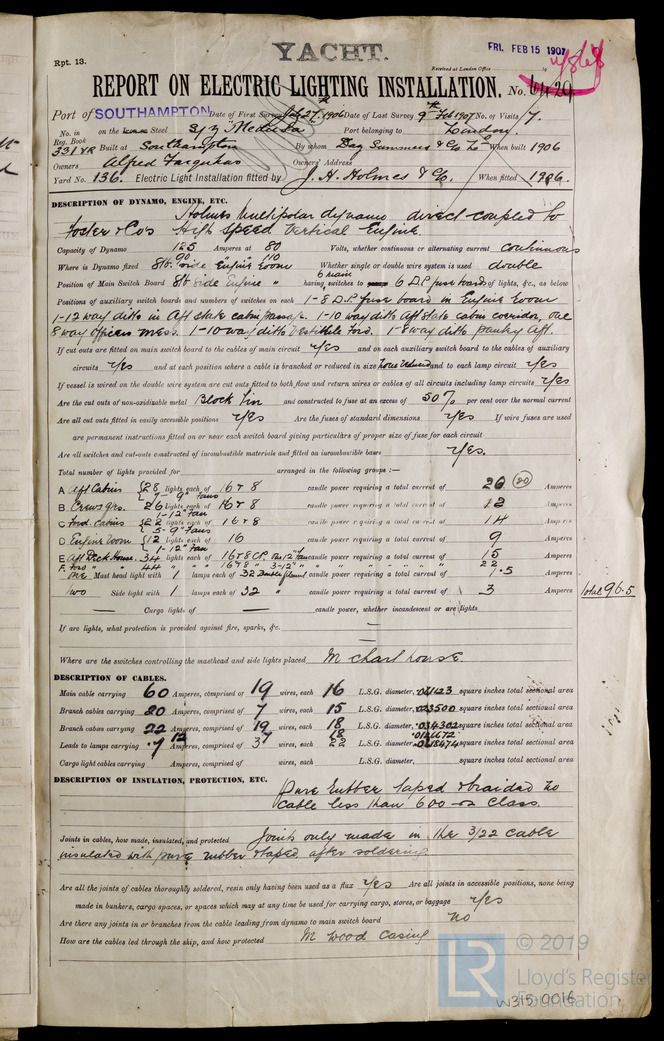 YACHT.
Rpt. 13.
Received at London Office
FRI. FEB 15 1907
REPORT ON ELECTRIC LIGHTING INSTALLATION. No.
Port of SOUTHAMPTON Date of First Survey July 27th 1906 Date of Last Survey 9th Feb 1907 No. of Visits 7.
No. in Reg. Book 331 YR on the Iron or Steel S/Y "Medusa" Port belonging to London.
Built at Southampton By whom Day Summers & Co Ld When built 1906
Owners Alfred Farquhar Owners' Address
Yard No. 136. Electric Light Installation fitted by J. H. Holmes & Co. When fitted 1906.
DESCRIPTION OF DYNAMO, ENGINE, ETC.
Holmes multipolar dynamo direct coupled to
Foster & Co's High Speed Vertical Engine.
Capacity of Dynamo 125 Amperes at 80 Volts, whether continuous or alternating current continuous
90 110
Where is Dynamo fixed Stb. side Engine Room Whether single or double wire system is used double
Position of Main Switch Board Stb side Engine " having 6 main switches to groups 6 D.P. fuse board of lights, &c., as below
Positions of auxiliary switch boards and numbers of switches on each 1-8 D.P. fuse board in Engine Room
1-12 way ditto in Aft state cabin passage. 1-10 way ditto Aft State cabin corridor, one
8 way Officers mess. 1-10 way ditto Vestibule Ford. 1-8 way ditto pantry aft.
If cut outs are fitted on main switch board to the cables of main circuit yes and on each auxiliary switch board to the cables of auxiliary
circuits yes and at each position where a cable is branched or reduced in size where reduced and to each lamp circuit yes
If vessel is wired on the double wire system are cut outs fitted to both flow and return wires or cables of all circuits including lamp circuits yes
Are the cut outs of non-oxidizable metal Block Tin and constructed to fuse at an excess of 50% per cent over the normal current
Are all cut outs fitted in easily accessible positions yes Are the fuses of standard dimensions yes If wire fuses are used
are permanent instructions fitted on or near each switch board giving particulars of proper size of fuse for each circuit
Are all switches and cut-outs constructed of incombustible materials and fitted on incombustible bases yes.
Total number of lights provided for arranged in the following groups :—
A Aft Cabins 28 lights each of 16 & 8 candle power requiring a total current of 20 (20) Amperes
7 - 9" Fans
B Crews qrs. 26 lights each of 16 & 8 candle power requiring a total current of 12 Amperes
1-12" Fan
C Ford. cabins 22 lights each of 16 & 8 candle power requiring a total current of 14 Amperes
5 - 9" Fans
D Engine Room 12 lights each of 16 candle power requiring a total current of 9 Amperes
1-12" Fan
E Aft Deck House. 34 lights each of 16 & 8 CP. One 12" Fan candle power requiring a total current of 15 Amperes
F. Ford " " 44 " " 16 & 8 " 3-12" " " " " " " 22
One Mast head light with 1 lamps each of 32 Double filament candle power requiring a total current of 1.5 Amperes
Two Side light with 1 lamps each of 32 " candle power requiring a total current of 3 Amperes
Total 96.5
— Cargo lights of — candle power, whether incandescent or arc lights
If arc lights, what protection is provided against fire, sparks, &c. —
Where are the switches controlling the masthead and side lights placed In chart house.
DESCRIPTION OF CABLES.
Main cable carrying 60 Amperes, comprised of 19 wires, each 16 L.S.G. diameter, square inches total sectional area
Branch cables carrying 20 Amperes, comprised of 7 wires, each 15 L.S.G. diameter, .023500 square inches total sectional area
Branch cables carrying 22 Amperes, comprised of 19 wires, each 18 L.S.G. diameter, .034302 square inches total sectional area
12 18 .0126672
Leads to lamps carrying .7 Amperes, comprised of 3 wires, each 22 L.S.G. diameter, square inches total sectional area
Cargo light cables carrying Amperes, comprised of wires, each L.S.G. diameter, square inches total sectional area
DESCRIPTION OF INSULATION, PROTECTION, ETC.
Pure Rubber taped & braided no
cable less than 600 Ω Class.
Joints in cables, how made, insulated, and protected Joints only made in the 3/22 cable
insulated with pure rubber & taped after soldering.
Are all the joints of cables thoroughly soldered, resin only having been used as a flux yes Are all joints in accessible positions, none being
made in bunkers, cargo spaces, or spaces which may at any time be used for carrying cargo, stores, or baggage yes
Are there any joints in or branches from the cable leading from dynamo to main switch board no
How are the cables led through the ship, and how protected In wood casing
© 2019
LR Lloyd's Register
Foundation
W315-0016